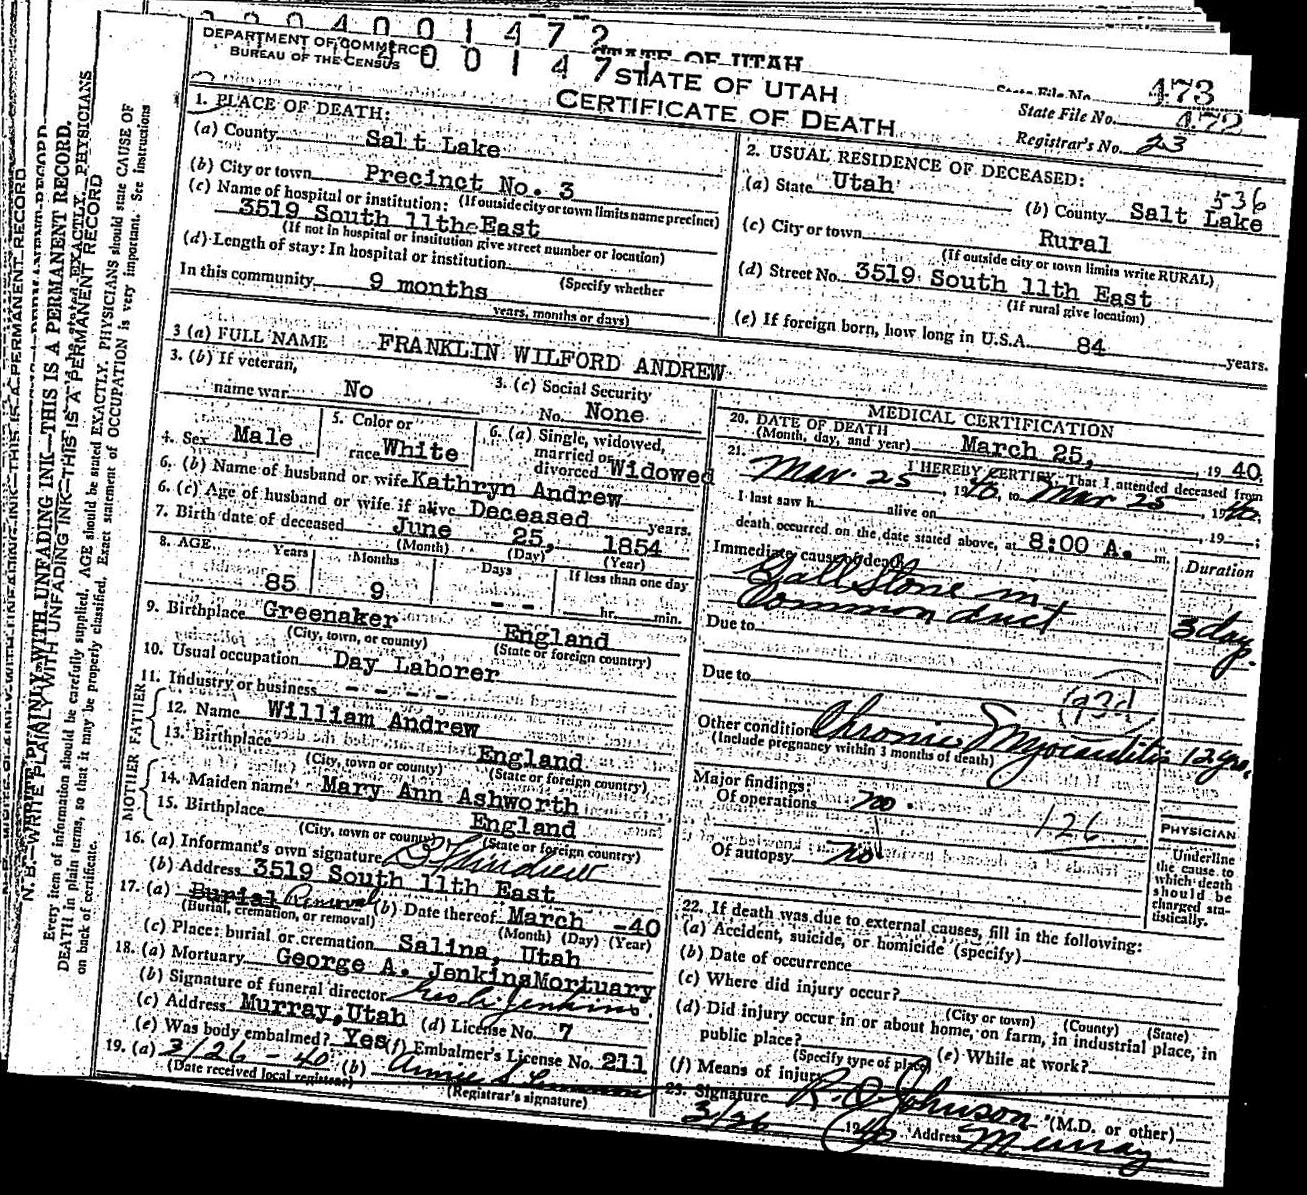 3 0 4 0 0 1 4 7 2
STATE OF UTAH
473
DEPARTMENT OF COMMERCE
BUREAU OF THE CENSUS
0 0 1 4 7 1
STATE OF UTAH
CERTIFICATE OF DEATH
State File No. 472
Registrar's No. 23
1. PLACE OF DEATH:
(a) County Salt Lake
(b) City or town Precinct No. 3
(If outside city or town limits name precinct)
(c) Name of hospital or institution:
3519 South 11th East
(If not in hospital or institution give street number or location)
(d) Length of stay: In hospital or institution
(Specify whether
In this community 9 months
years, months or days)
2. USUAL RESIDENCE OF DECEASED:
536
(a) State Utah (b) County Salt Lake
(c) City or town Rural
(If outside city or town limits write RURAL)
(d) Street No. 3519 South 11th East
(If rural give location)
(e) If foreign born, how long in U.S.A. 84 years.
3 (a) FULL NAME FRANKLIN WILFORD ANDREW
3. (b) If veteran,
name war No
3. (c) Social Security
No. None
4. Sex Male
5. Color or
race White
6. (a) Single, widowed,
married or
divorced Widowed
6. (b) Name of husband or wife Kathryn Andrew
6. (c) Age of husband or wife if alive Deceased years.
7. Birth date of deceased June 25, 1854
(Month) (Day) (Year)
8. AGE Years Months Days If less than one day
85 9 -- hr. min.
9. Birthplace Greenaker England
(City, town, or county) (State or foreign country)
10. Usual occupation Day Laborer
11. Industry or business - - - -
FATHER
12. Name William Andrew
13. Birthplace England
(City, town or county) (State or foreign country)
MOTHER
14. Maiden name Mary Ann Ashworth
15. Birthplace England
(City, town or county) (State or foreign country)
16. (a) Informant's own signature Andrew
(b) Address 3519 South 11th East
17. (a) Burial Removal (b) Date thereof March -40
(Burial, cremation, or removal) (Month) (Day) (Year)
(c) Place: burial or cremation Salina, Utah
18. (a) Mortuary George A. Jenkins Mortuary
(b) Signature of funeral director Geo A. Jenkins.
(c) Address Murray, Utah (d) License No. 7
(e) Was body embalmed? Yes (f) Embalmer's License No. 211
19. (a) 3/26-40 (b)
(Date received local registrar) (Registrar's signature)
MEDICAL CERTIFICATION
20. DATE OF DEATH
(Month, day, and year) March 25, 1940
21. I HEREBY CERTIFY, That I attended deceased from
Mar. 25, 1940, to Mar 25, 1940.
I last saw h alive on , 19 ;
death occurred on the date stated above, at 8:00 A. m.
Immediate cause of death Duration
Gall Stone in
Common duct 3 day.
Due to
Due to
Other condition Chronic Myocarditis 12 yrs.
(Include pregnancy within 3 months of death)
Major findings:
Of operations no.
126
Of autopsy no
PHYSICIAN
Underline
the cause to
which death
should be
charged sta-
tistically.
22. If death was due to external causes, fill in the following:
(a) Accident, suicide, or homicide (specify)
(b) Date of occurrence
(c) Where did injury occur?
(City or town) (County) (State)
(d) Did injury occur in or about home, on farm, in industrial place, in
public place? (e) While at work?
(Specify type of place)
(f) Means of injury
23. Signature R. O. Johnson (M.D. or other)
3/26 1940 Address Murray
N. B.—WRITE PLAINLY WITH UNFADING INK—THIS IS A PERMANENT RECORD
Every item of information should be carefully supplied. AGE should be stated EXACTLY. PHYSICIANS should state CAUSE OF
DEATH in plain terms, so that it may be properly classified. Exact statement of OCCUPATION is very important. See instructions
on back of certificate.